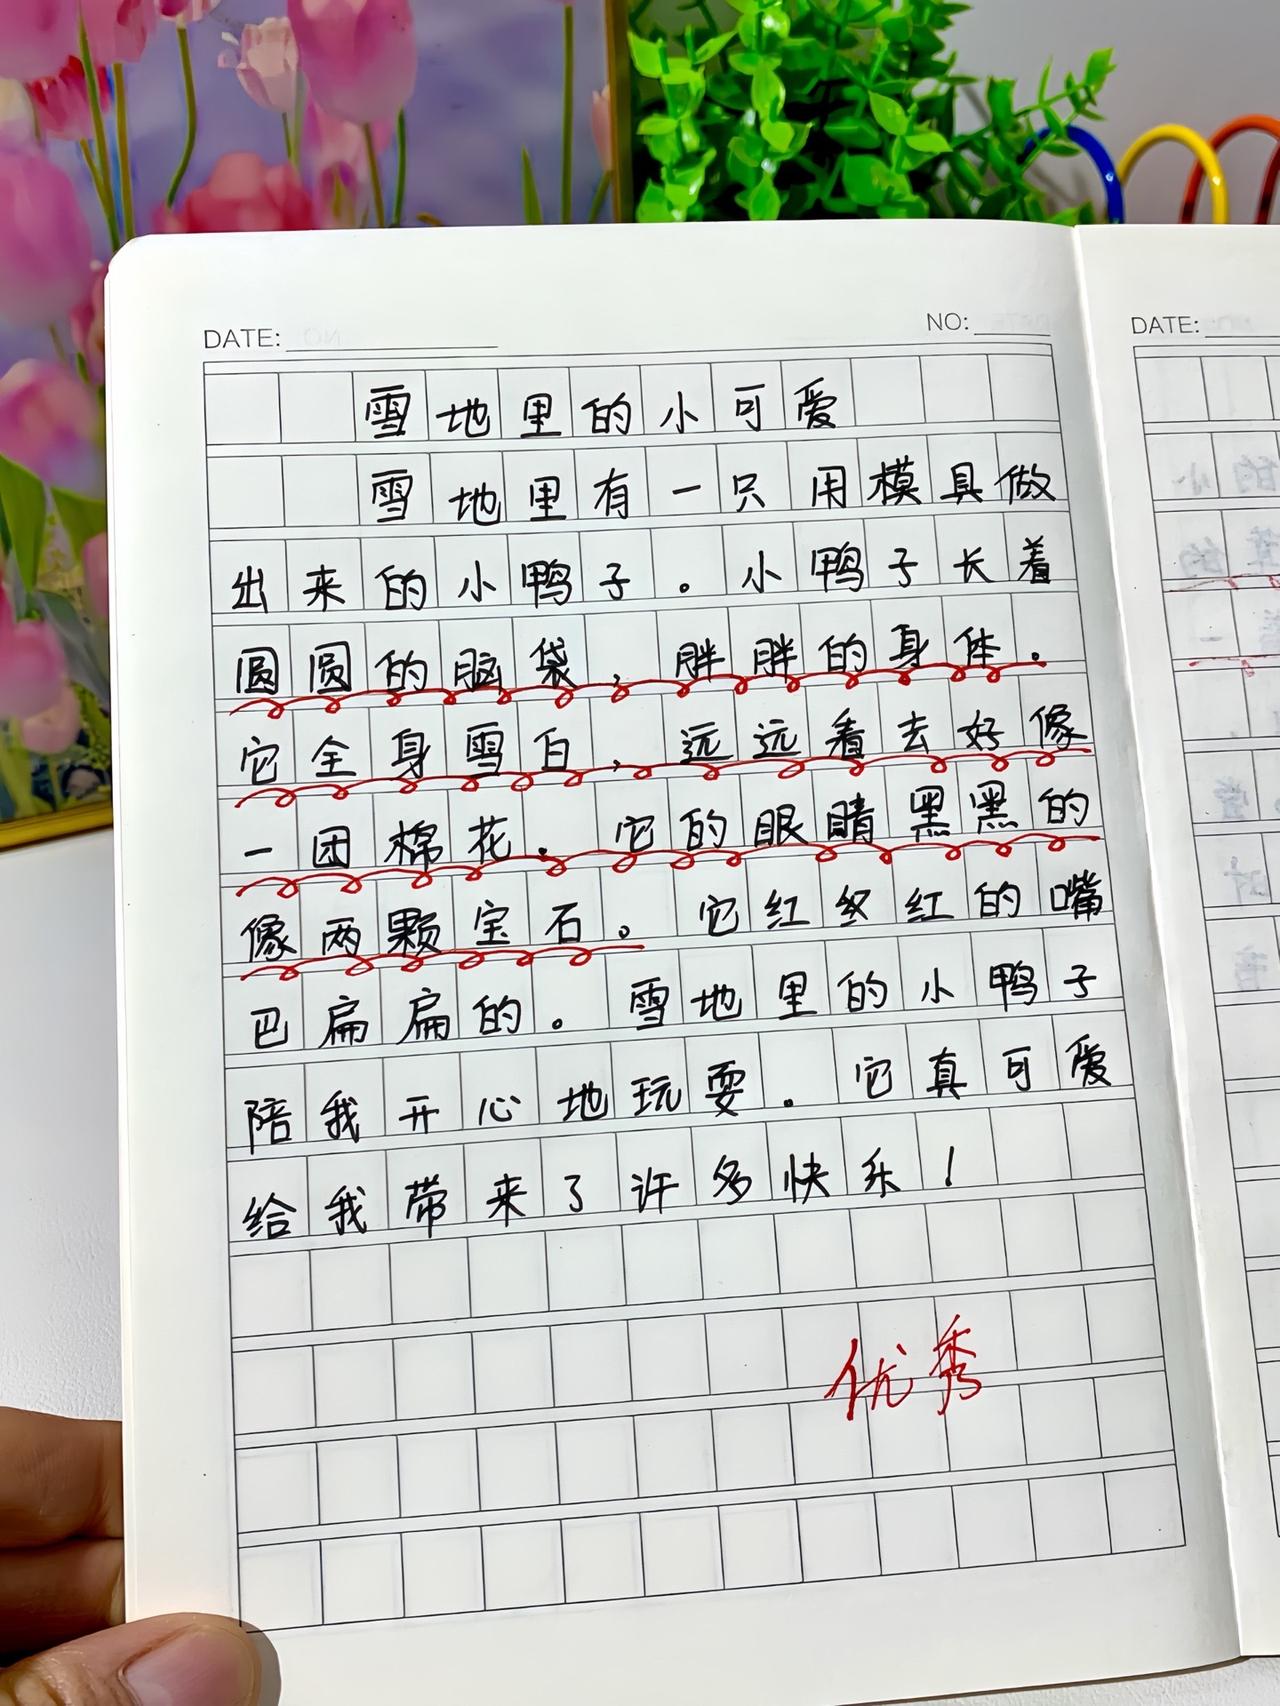 DATE:
NO:
DATE:
雪地里的小可爱
雪地里有一只用模具做
出来的小鸭子。小鸭子长着
圆圆的脑袋,胖胖的身体.
它全身雪白,远远看去好像
一团棉花。它的眼睛黑黑的
像两颗宝石。它红红红的嘴
巴扁扁的。雪地里的小鸭子
陪我开心地玩耍。它真可爱
给我带来了许多快乐!
优秀